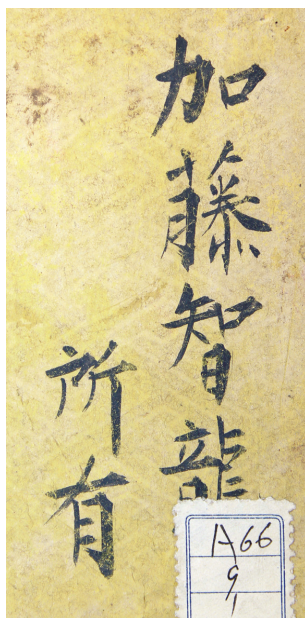 加藤智龍
所有
A66
9
1